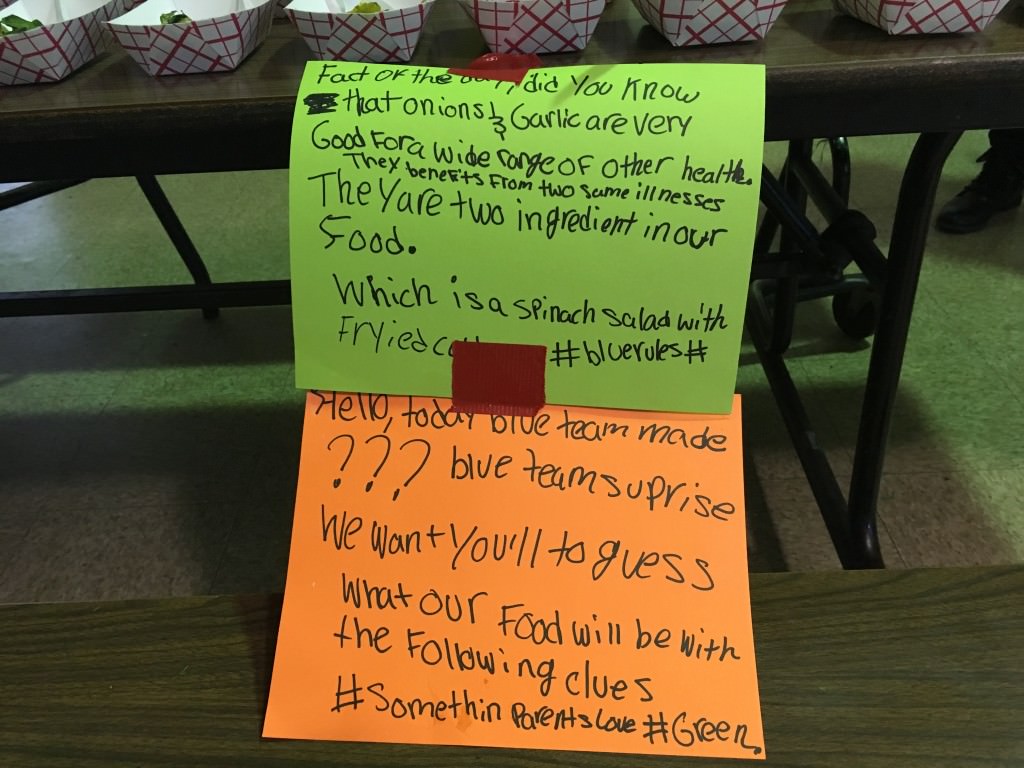 Fact of the day, did You Know
that onions & Garlic are very
Good For a wide range of other health.
They benefits From two some illnesses
They are two ingredient in our
Food.
Which is a spinach salad with
Fryied #bluerules#
Hello, today blue team made
??? blue team suprise
We want You'll to guess
What our Food will be with
the Following clues
#Somethin Parents Love #Green.